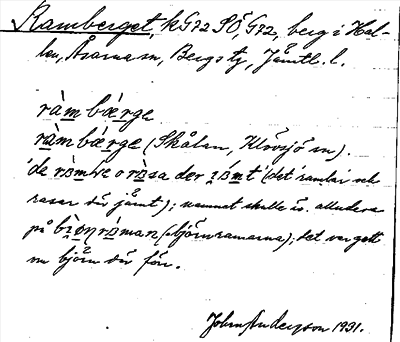 Ramberget, kG72 SÖ, G72, berg i Hal-
len, Åsarna sn, Bergs tg, Jämtl. l.
ràm bærge
ràm bærge (Skålan, Klövsjö sn).
'de rɷmle o rɷsa der jämt' (det 'ramlar och
rasar där jämt); namnet skulle äv. alludera
på bìɷnrɷman (björnramarna); det var gott
om björn där förr.
John Anderzson 1931.